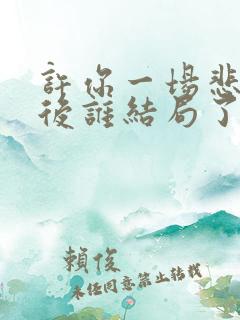 許你一場悲
後誰結局了
賴俊
未經同意禁止轉載